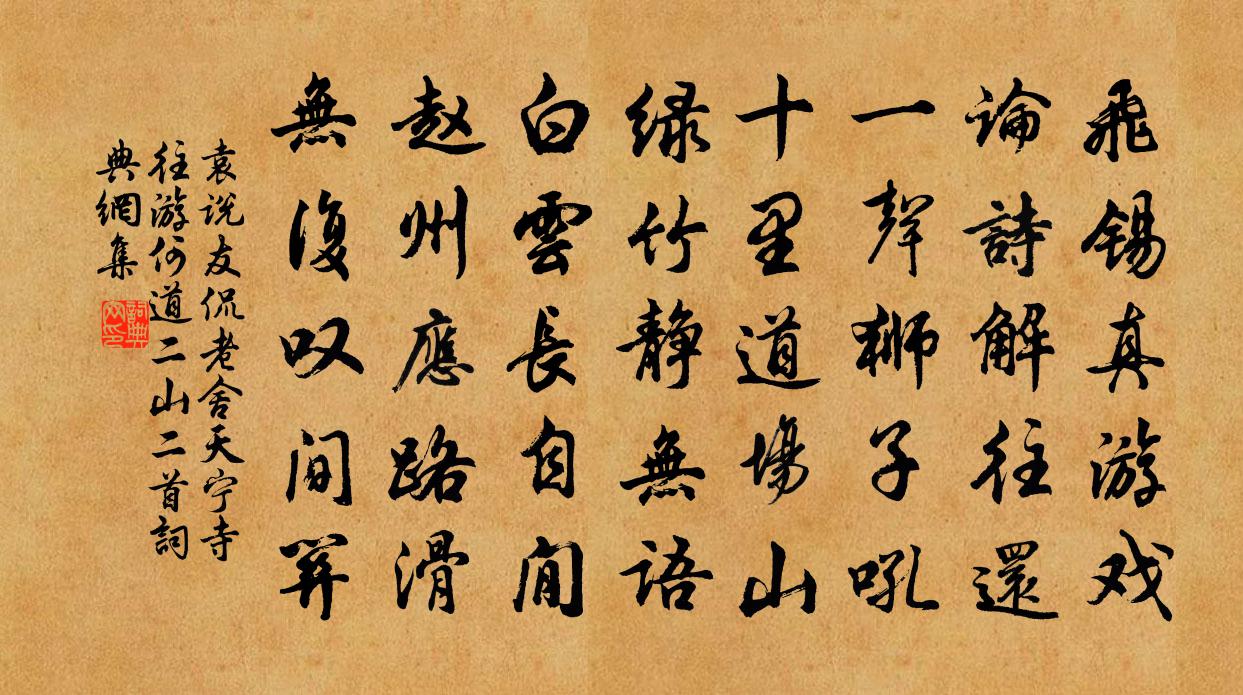 飛錫真游戏
論詩解往還
一聲狮子吼
十里道場山
绿竹静無語
白雲長自閒
赵州應路滑
無復叹間関
袁说友侃老舍天宁寺
往游何道二山二首詞
典網集
詞典
网印